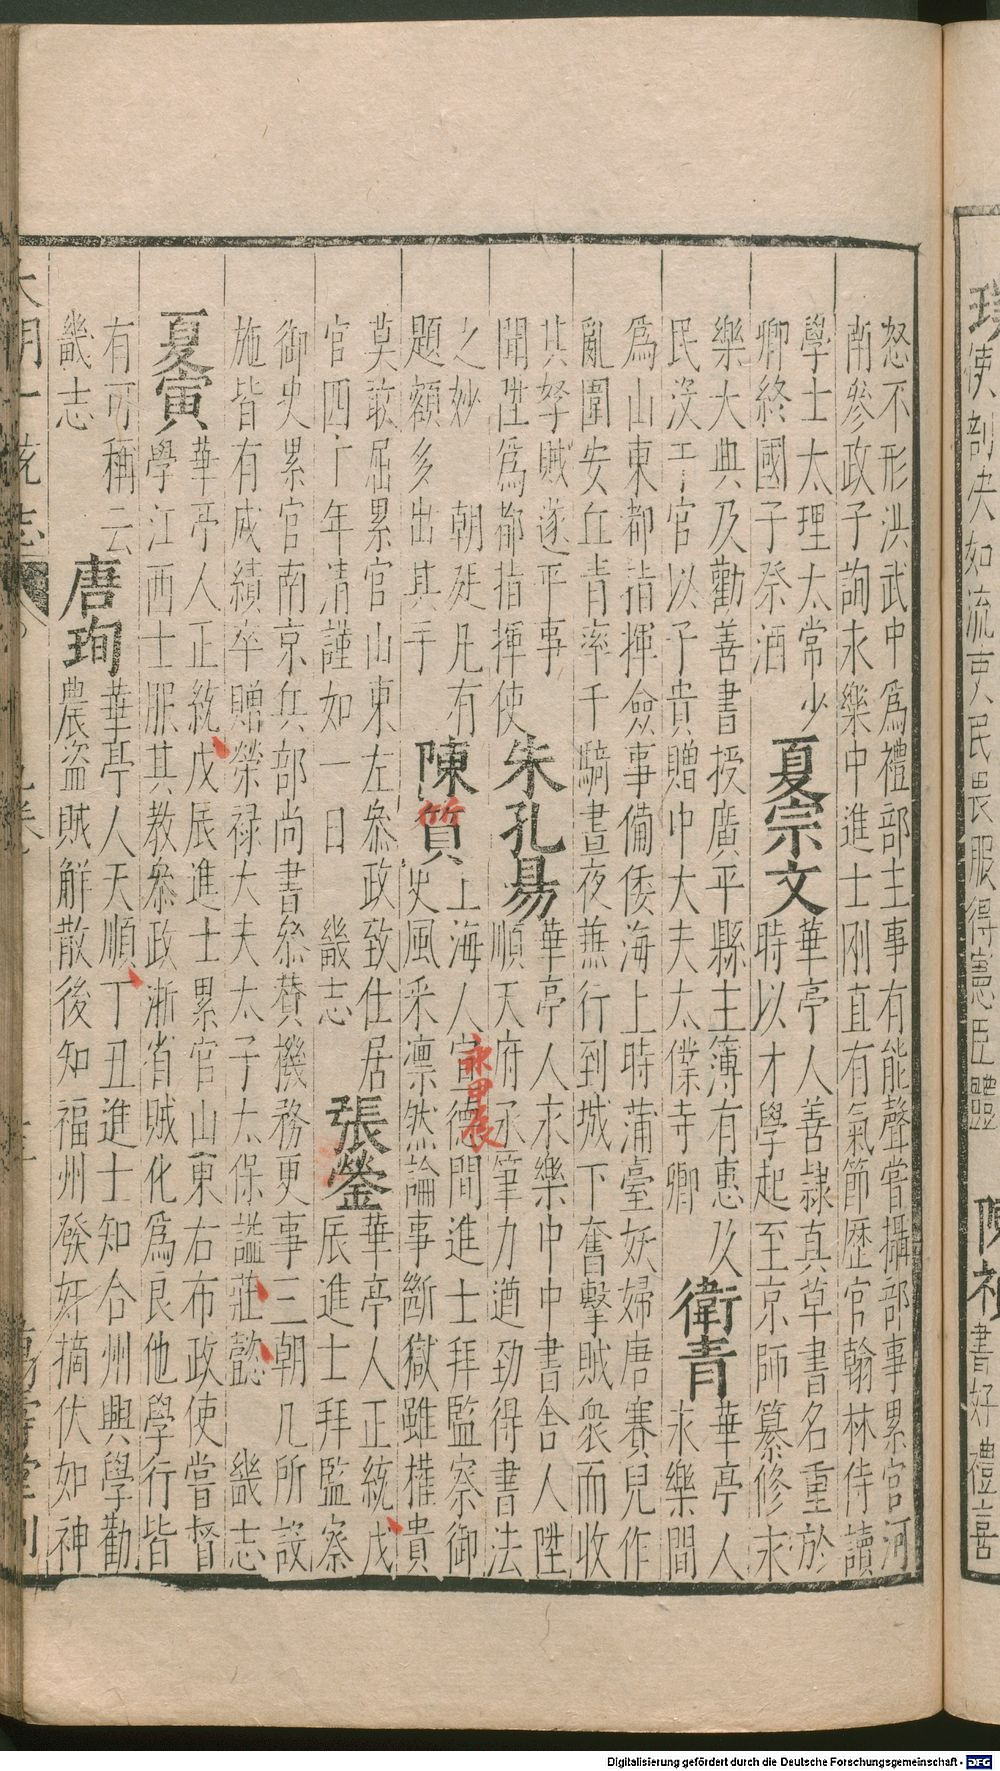 使剖决如流吏民畏服得憲臣體
書好禮喜
怒不形洪武中爲禮部主事有能聲嘗攝部事累官河
南參政子詢永樂中進士剛直有氣節歷官翰林侍讀
學士太理太常少
卿終國子祭酒
夏宗文
華亭人善隸真草書名重於
時以才學起至京師纂修永
樂大典及勸善書授廣平縣主簿有惠及
民沒于官以子貴贈中大夫太僕寺卿
衛青
華亭人
永樂間
爲山東都指揮僉事備倭海上時蒲臺妖婦唐賽兒作
亂圍安丘青率千騎晝夜蕪行到城下奮擊賊衆而收
其孥賊遂平事
聞陞爲都指揮使
朱孔昜
華亭人永樂中中書舍人陞
順天府丞筆力遒勁得書法
之妙 朝廷凡有
題額多出其手
陳質
質
上海人宣德間進士拜監察御
永甲辰
史風采凛然論事斷獄雖權貴
莫敢屈累官山東左叅政致仕居
官四十年清謹如一日 畿志
張鎣
華亭人正統戊
辰進士拜監察
御史累官南京兵部尚書叅贊機務更事三朝凡所設
施皆有成績卒贈榮禄大夫太子太保謚莊懿 畿志
夏寅
華亭人正統戊辰進士累官山東右布政使嘗督
學江西士服其教叅政浙省賊化爲良他學行皆
有可稱云
畿志
唐珣
華亭人天順丁丑進士知合州興學勸
農盜賊解散後知福州發奸摘伏如神
大明一統志 萬壽堂刊
Digitalisierung gefördert durch die Deutsche Forschungsgemeinschaft - DFG